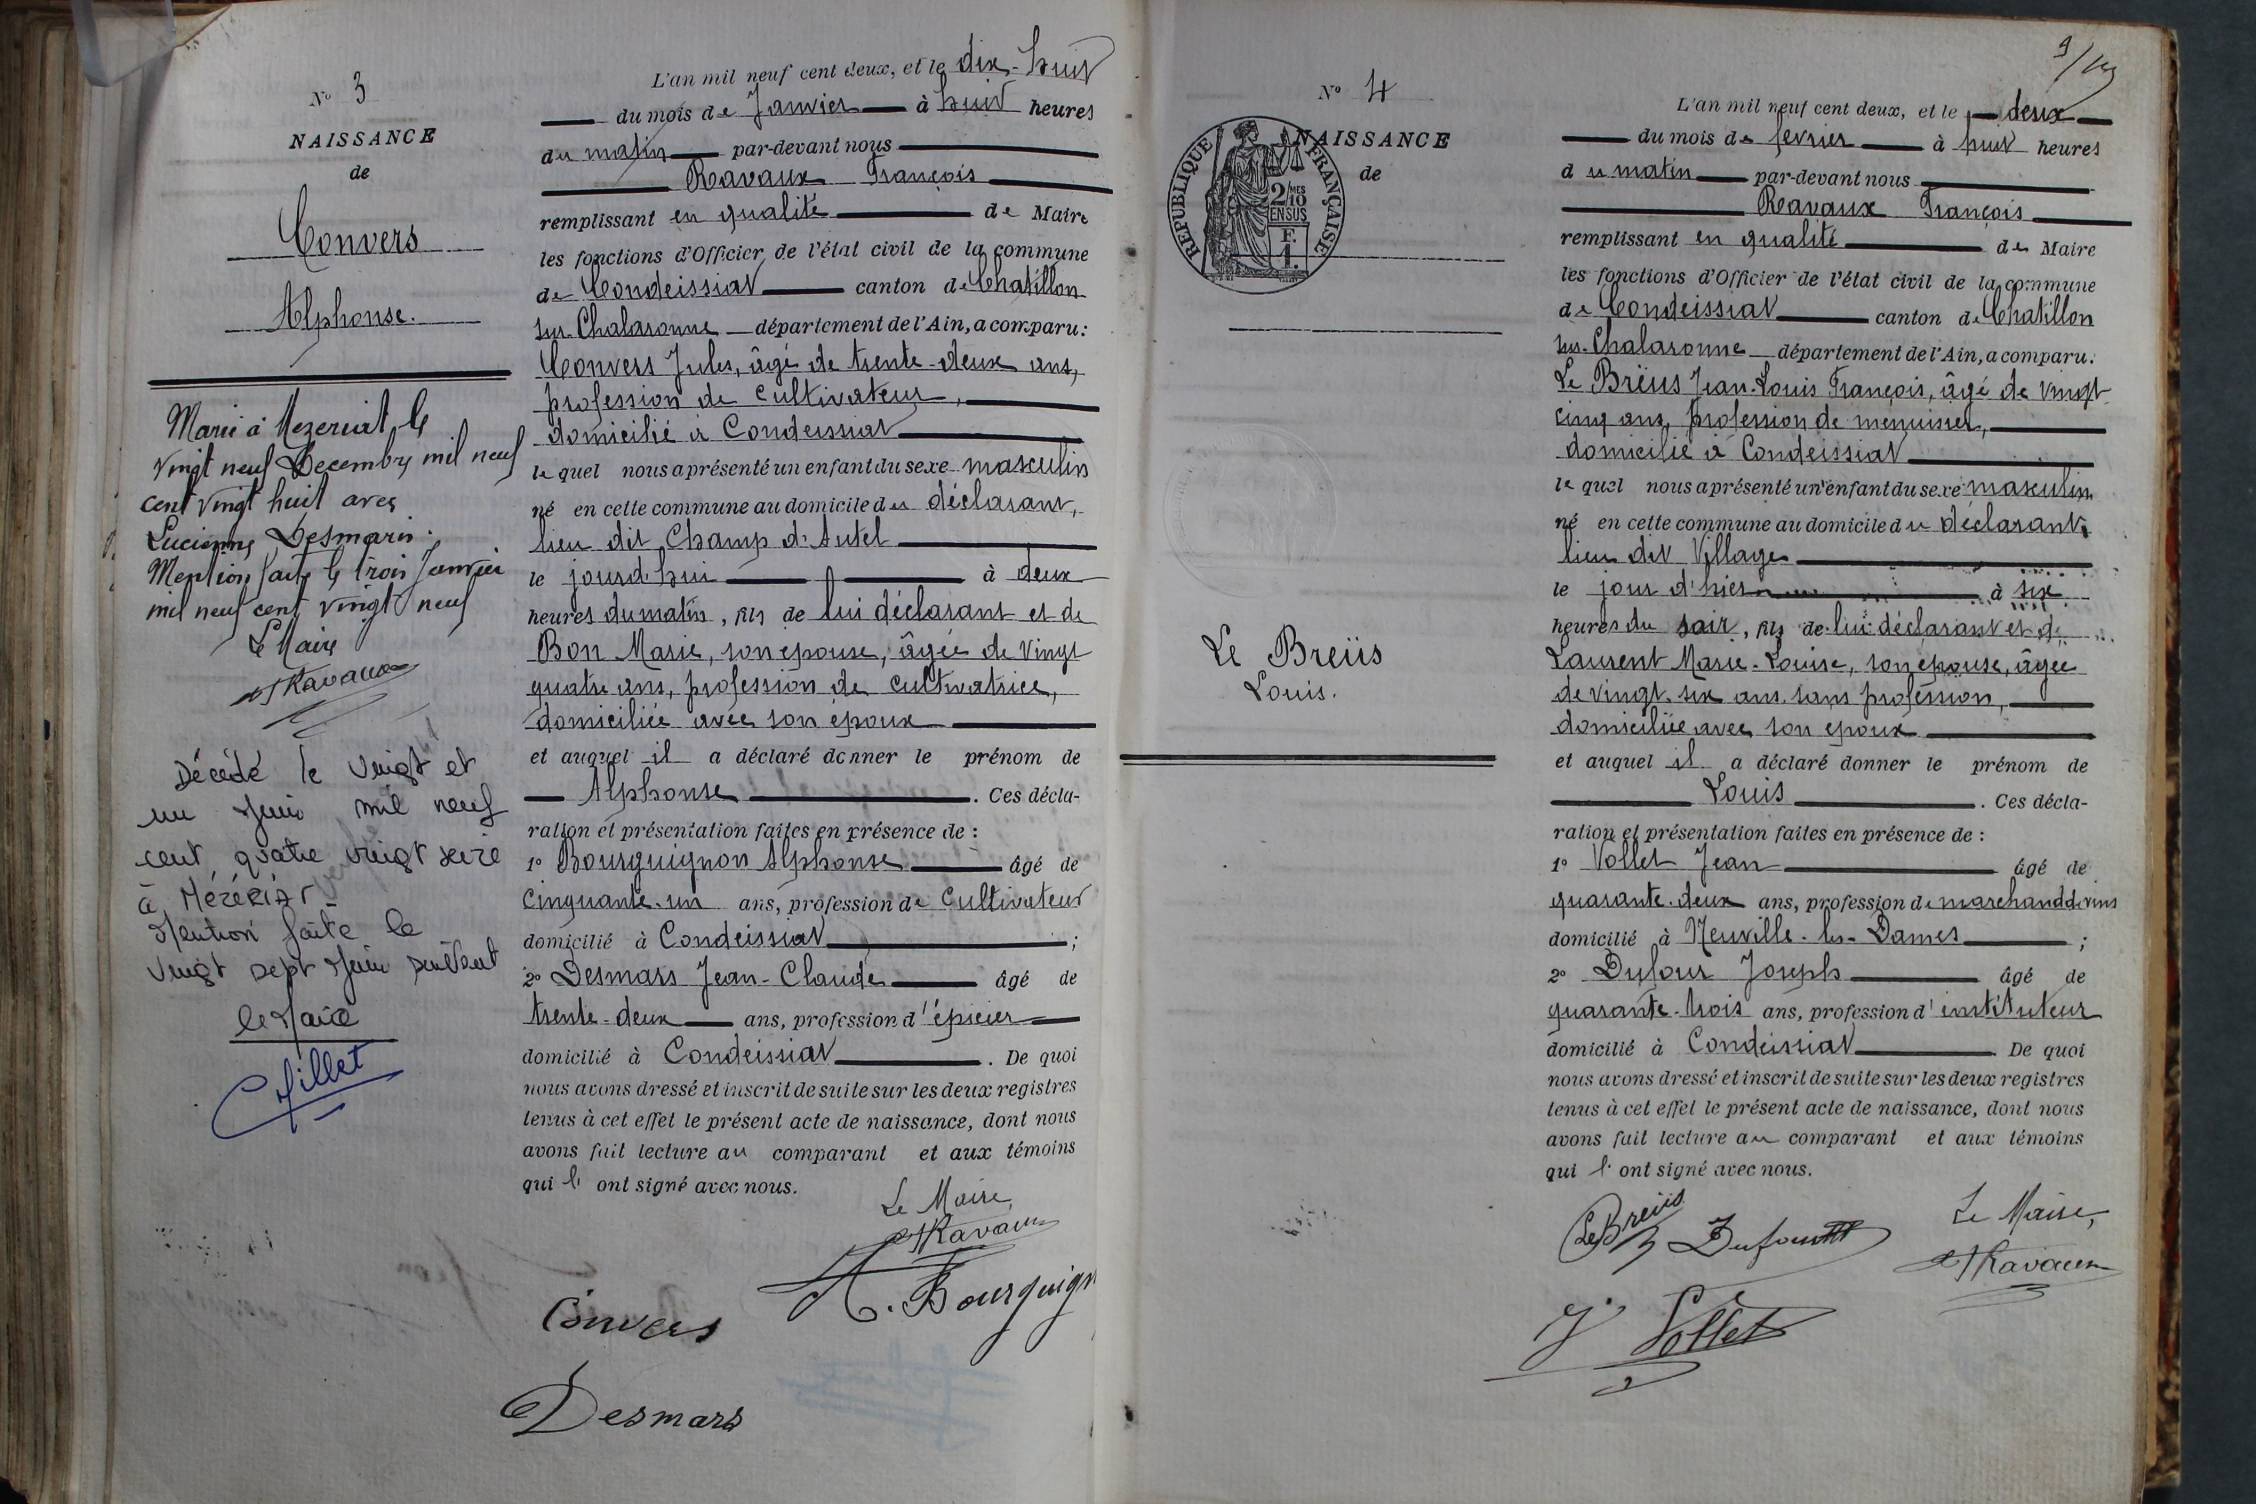 Nº 3
NAISSANCE
de
Convers
Alphonse.
Marié à Mezeriat, le
vingt neuf Décembre mil neuf
cent vingt huit avec
Lucienne Desmaris.
Mention faite le trois Janvier
mil neuf cent vingt neuf
Le Maire
Ravaux
Décédé le vingt et
un Juin mil neuf
cent quatre vingt seize
à Mézériat
Mention faite le
vingt sept Juin suivant
le Maire
L'an mil neuf cent deux, et le dix-huit
du mois de Janvier à huit heures
du matin par-devant nous
Ravaux François
remplissant en qualité de Maire
les fonctions d'Officier de l'état civil de la commune
de Condeissiat canton de Chatillon
sur-Chalaronne département de l'Ain, a comparu:
Convers Jules, âgé de trente-deux ans,
profession de cultivateur,
domicilié à Condeissiat
lequel nous a présenté un enfant du sexe masculin
né en cette commune au domicile du déclarant,
lieu dit Champ d'Autel
le jourd'hui à deux
heures du matin, fils de lui déclarant et de
Bon Marie, son épouse, âgée de vingt
quatre ans, profession de cultivatrice,
domiciliée avec son époux
et auquel il a déclaré donner le prénom de
Alphonse. Ces décla-
ration et présentation faites en présence de :
1º Bourguignon Alphonse âgé de
cinquante-un ans, profession de cultivateur
domicilié à Condeissiat ;
2º Desmars Jean-Claude âgé de
trente-deux ans, profession d'épicier
domicilié à Condeissiat. De quoi
nous avons dressé et inscrit de suite sur les deux registres
tenus à cet effet le présent acte de naissance, dont nous
avons fait lecture au comparant et aux témoins
qui l' ont signé avec nous.
Le Maire,
Ravaux
A. Bourguign
Convers
Desmars
Nº 4
NAISSANCE
de
RÉPUBLIQUE FRANÇAISE
2/10 MES
EN SUS
F.
1.
Le Breüs
Louis.
L'an mil neuf cent deux, et le deux
du mois de février à huit heures
du matin par-devant nous
Ravaux François
remplissant en qualité de Maire
les fonctions d'Officier de l'état civil de la commune
de Condeissiat canton de Chatillon
sur-Chalaronne département de l'Ain, a comparu:
Le Breüs Jean-Louis François, âgé de vingt-
cinq ans, profession de menuisier,
domicilié à Condeissiat
lequel nous a présenté un enfant du sexe masculin
né en cette commune au domicile du déclarant,
lieu dit Village
le jour d'hier à six
heures du soir, fils de lui déclarant et de
Laurent Marie-Louise, son épouse, âgée
de vingt-six ans, sans profession,
domiciliée avec son époux
et auquel il a déclaré donner le prénom de
Louis. Ces décla-
ration et présentation faites en présence de :
1º Vollet Jean âgé de
quarante-deux ans, profession de marchand de vins
domicilié à Neuville-les-Dames ;
2º Dufour Joseph âgé de
quarante-trois ans, profession d'instituteur
domicilié à Condeissiat. De quoi
nous avons dressé et inscrit de suite sur les deux registres
tenus à cet effet le présent acte de naissance, dont nous
avons fait lecture au comparant et aux témoins
qui l' ont signé avec nous.
Le Breüs
Dufour
Le Maire,
Ravaux
J Vollet